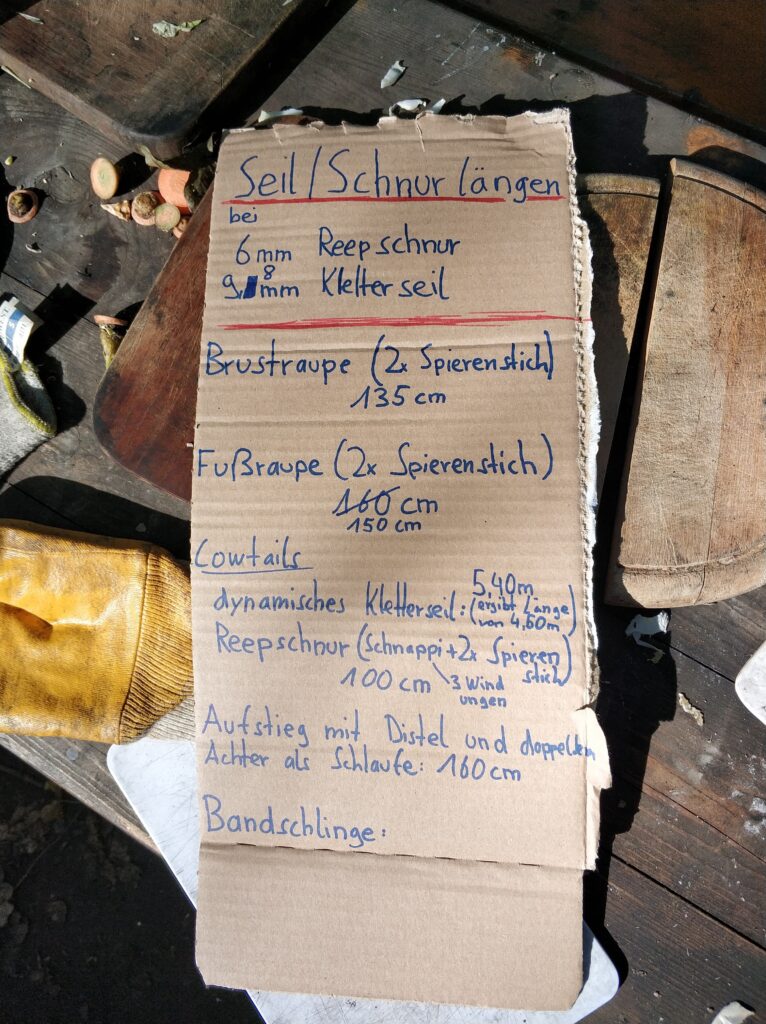 Seil/Schnur längen
bei
6mm Reepschnur
9,8mm Kletterseil
Brustraupe (2x Spierenstich)
135cm
Fußraupe (2x Spierenstich)
160 cm
150 cm
Cowtails
dynamisches Kletterseil: 5,40m
(ergibt Länge
von 4,60m)
Reepschnur (Schnappi+2x Spieren
stich)
100cm 3 Wind
ungen
Aufstieg mit Distel und doppeltem
Achter als Schlaufe: 160cm
Bandschlinge: